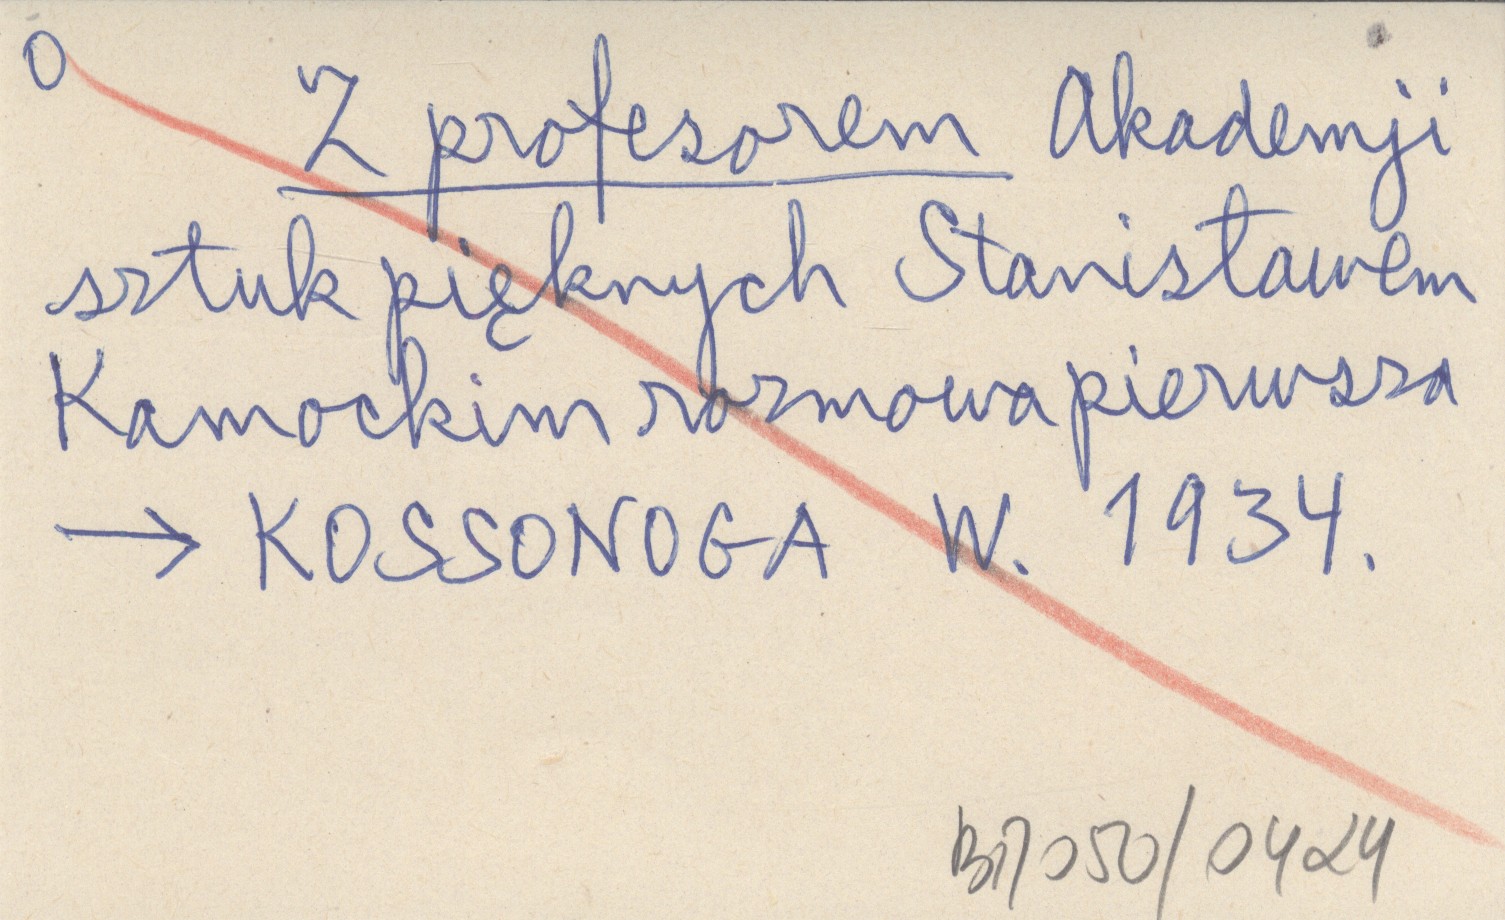 O
Z profesorem Akademji
sztuk pięknych Stanisławem
Kamockim rozmowa pierwsza
→ KOSSONOGA W. 1934.
050/0424